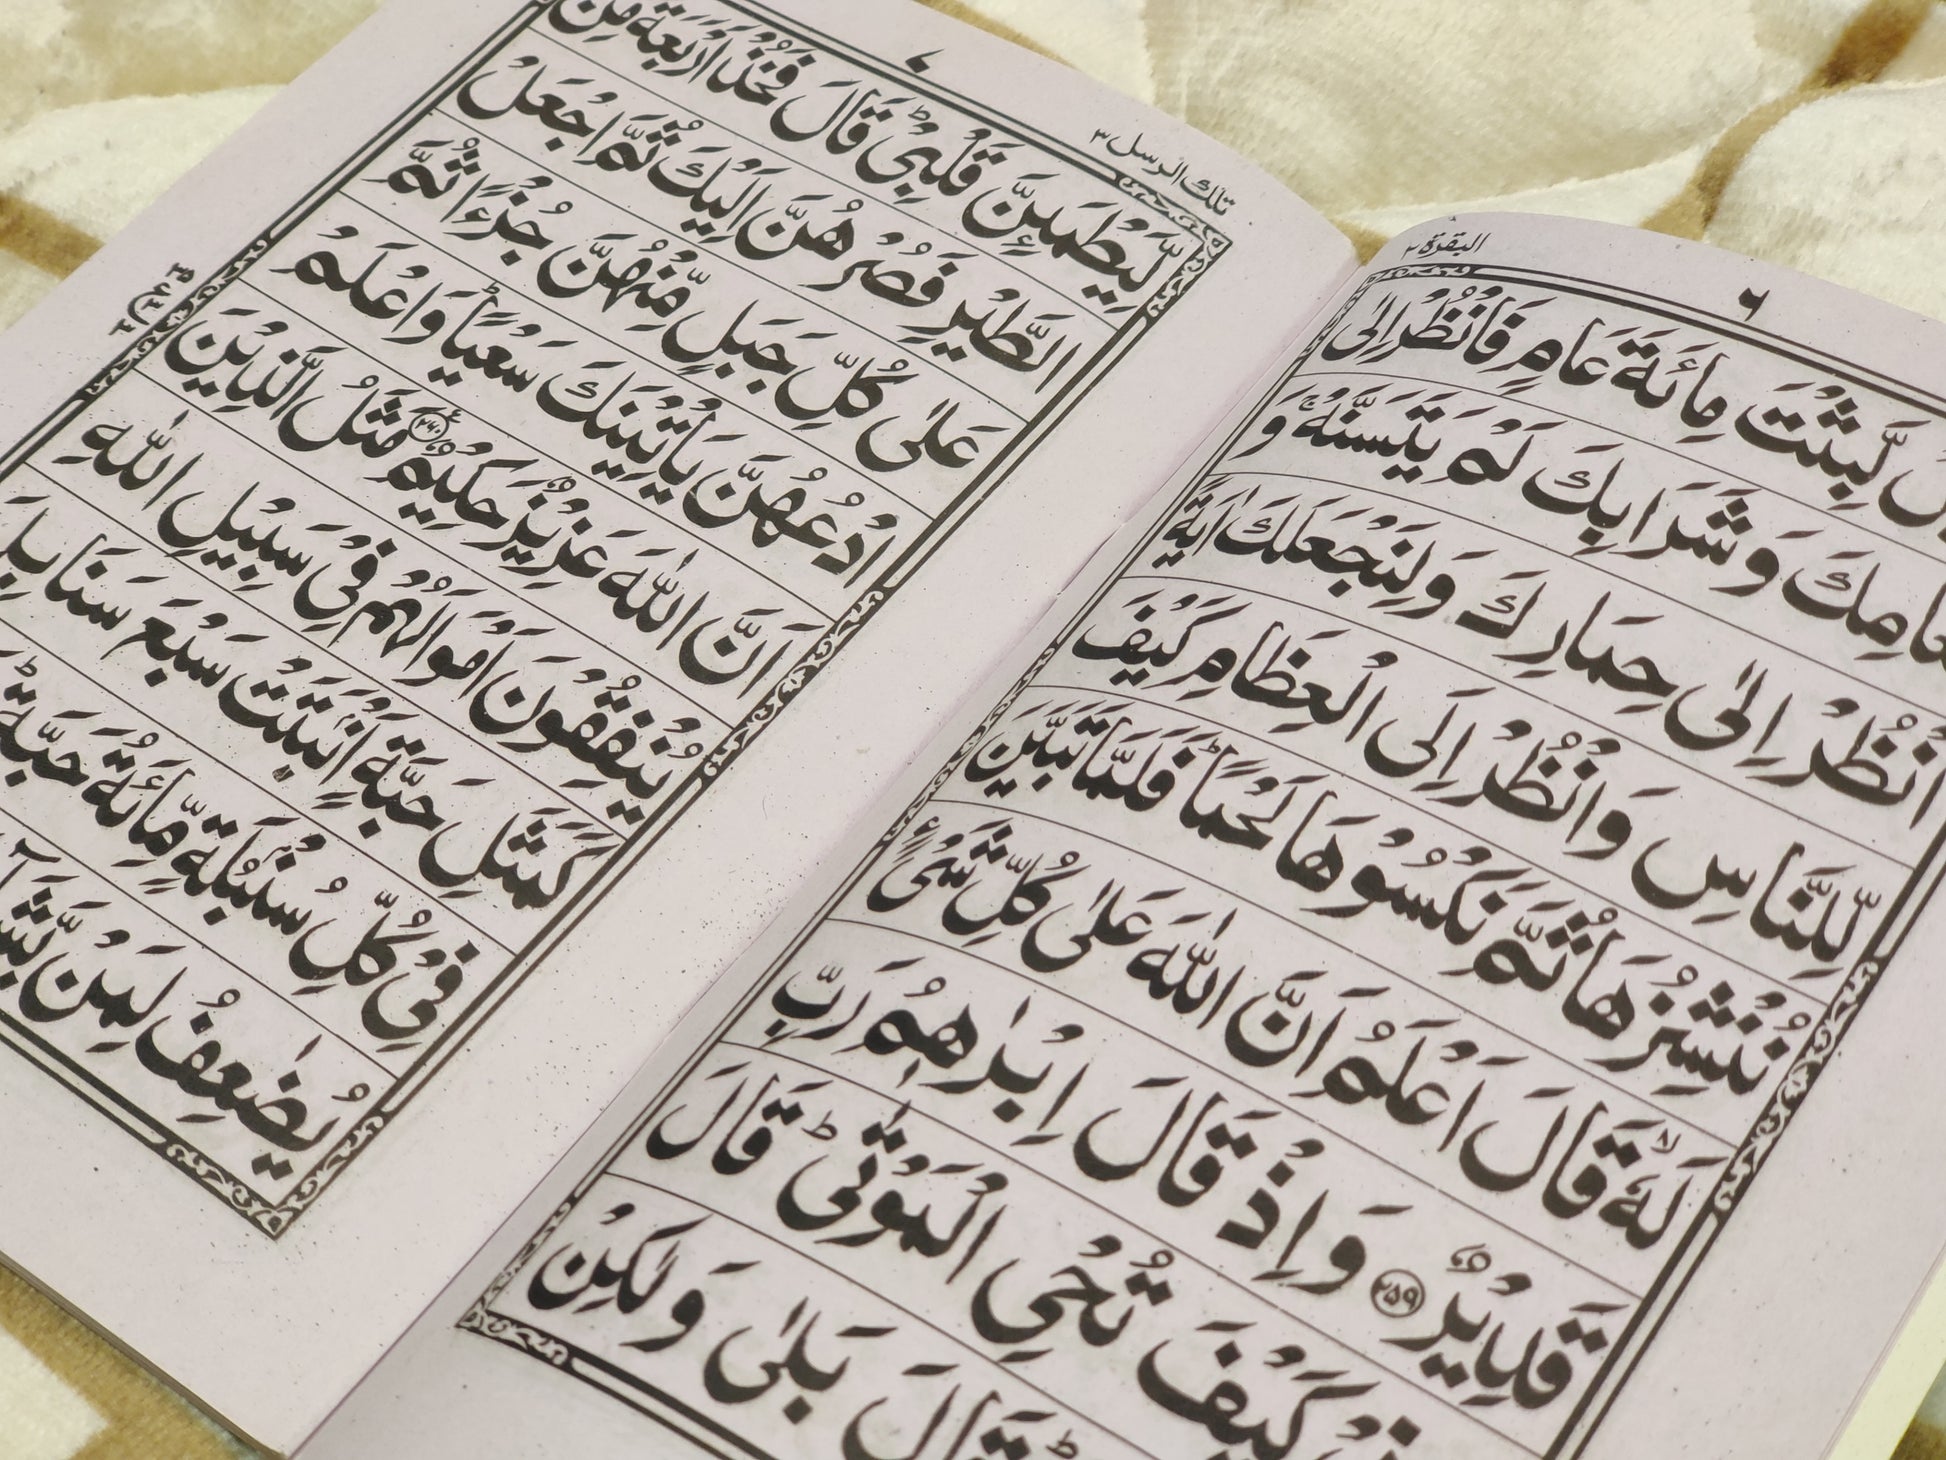 البقرة ٢
٦
لَّبِثْتَ مِائَةَ عَامٍ فَانْظُرْ اِلٰى
وَشَرَابِكَ لَمْ يَتَسَنَّهْ ۚ وَ
انْظُرْ اِلٰى حِمَارِكَ وَلِنَجْعَلَكَ اٰيَةً
لِّلنَّاسِ وَانْظُرْ اِلَى الْعِظَامِ كَيْفَ
نُنْشِزُهَا ثُمَّ نَكْسُوْهَا لَحْمًا ؕ فَلَمَّا تَبَيَّنَ
لَهٗ ۙ قَالَ اَعْلَمُ اَنَّ اللّٰهَ عَلٰى كُلِّ شَىْءٍ
قَدِيْرٌ ۝٢٥٩ وَاِذْ قَالَ اِبْرٰهٖمُ رَبِّ
كَيْفَ تُحْىِ الْمَوْتٰى ؕ قَالَ
قَالَ بَلٰى وَلٰكِنْ
تلك الرسل ٣
٧
لِّيَطْمَئِنَّ قَلْبِىْ ؕ قَالَ فَخُذْ اَرْبَعَةً مِّنَ
الطَّيْرِ فَصُرْهُنَّ اِلَيْكَ ثُمَّ اجْعَلْ
عَلٰى كُلِّ جَبَلٍ مِّنْهُنَّ جُزْءًا ثُمَّ
ادْعُهُنَّ يَاْتِيْنَكَ سَعْيًا ؕ وَاعْلَمْ
اَنَّ اللّٰهَ عَزِيْزٌ حَكِيْمٌ ۝٢٦٠ مَثَلُ الَّذِيْنَ
يُنْفِقُوْنَ اَمْوَالَهُمْ فِىْ سَبِيْلِ اللّٰهِ
كَمَثَلِ حَبَّةٍ اَنْۢبَتَتْ سَبْعَ سَنَابِلَ
فِىْ كُلِّ سُنْۢبُلَةٍ مِّائَةُ حَبَّةٍ ؕ
يُضٰعِفُ لِمَنْ يَّشَآءُ